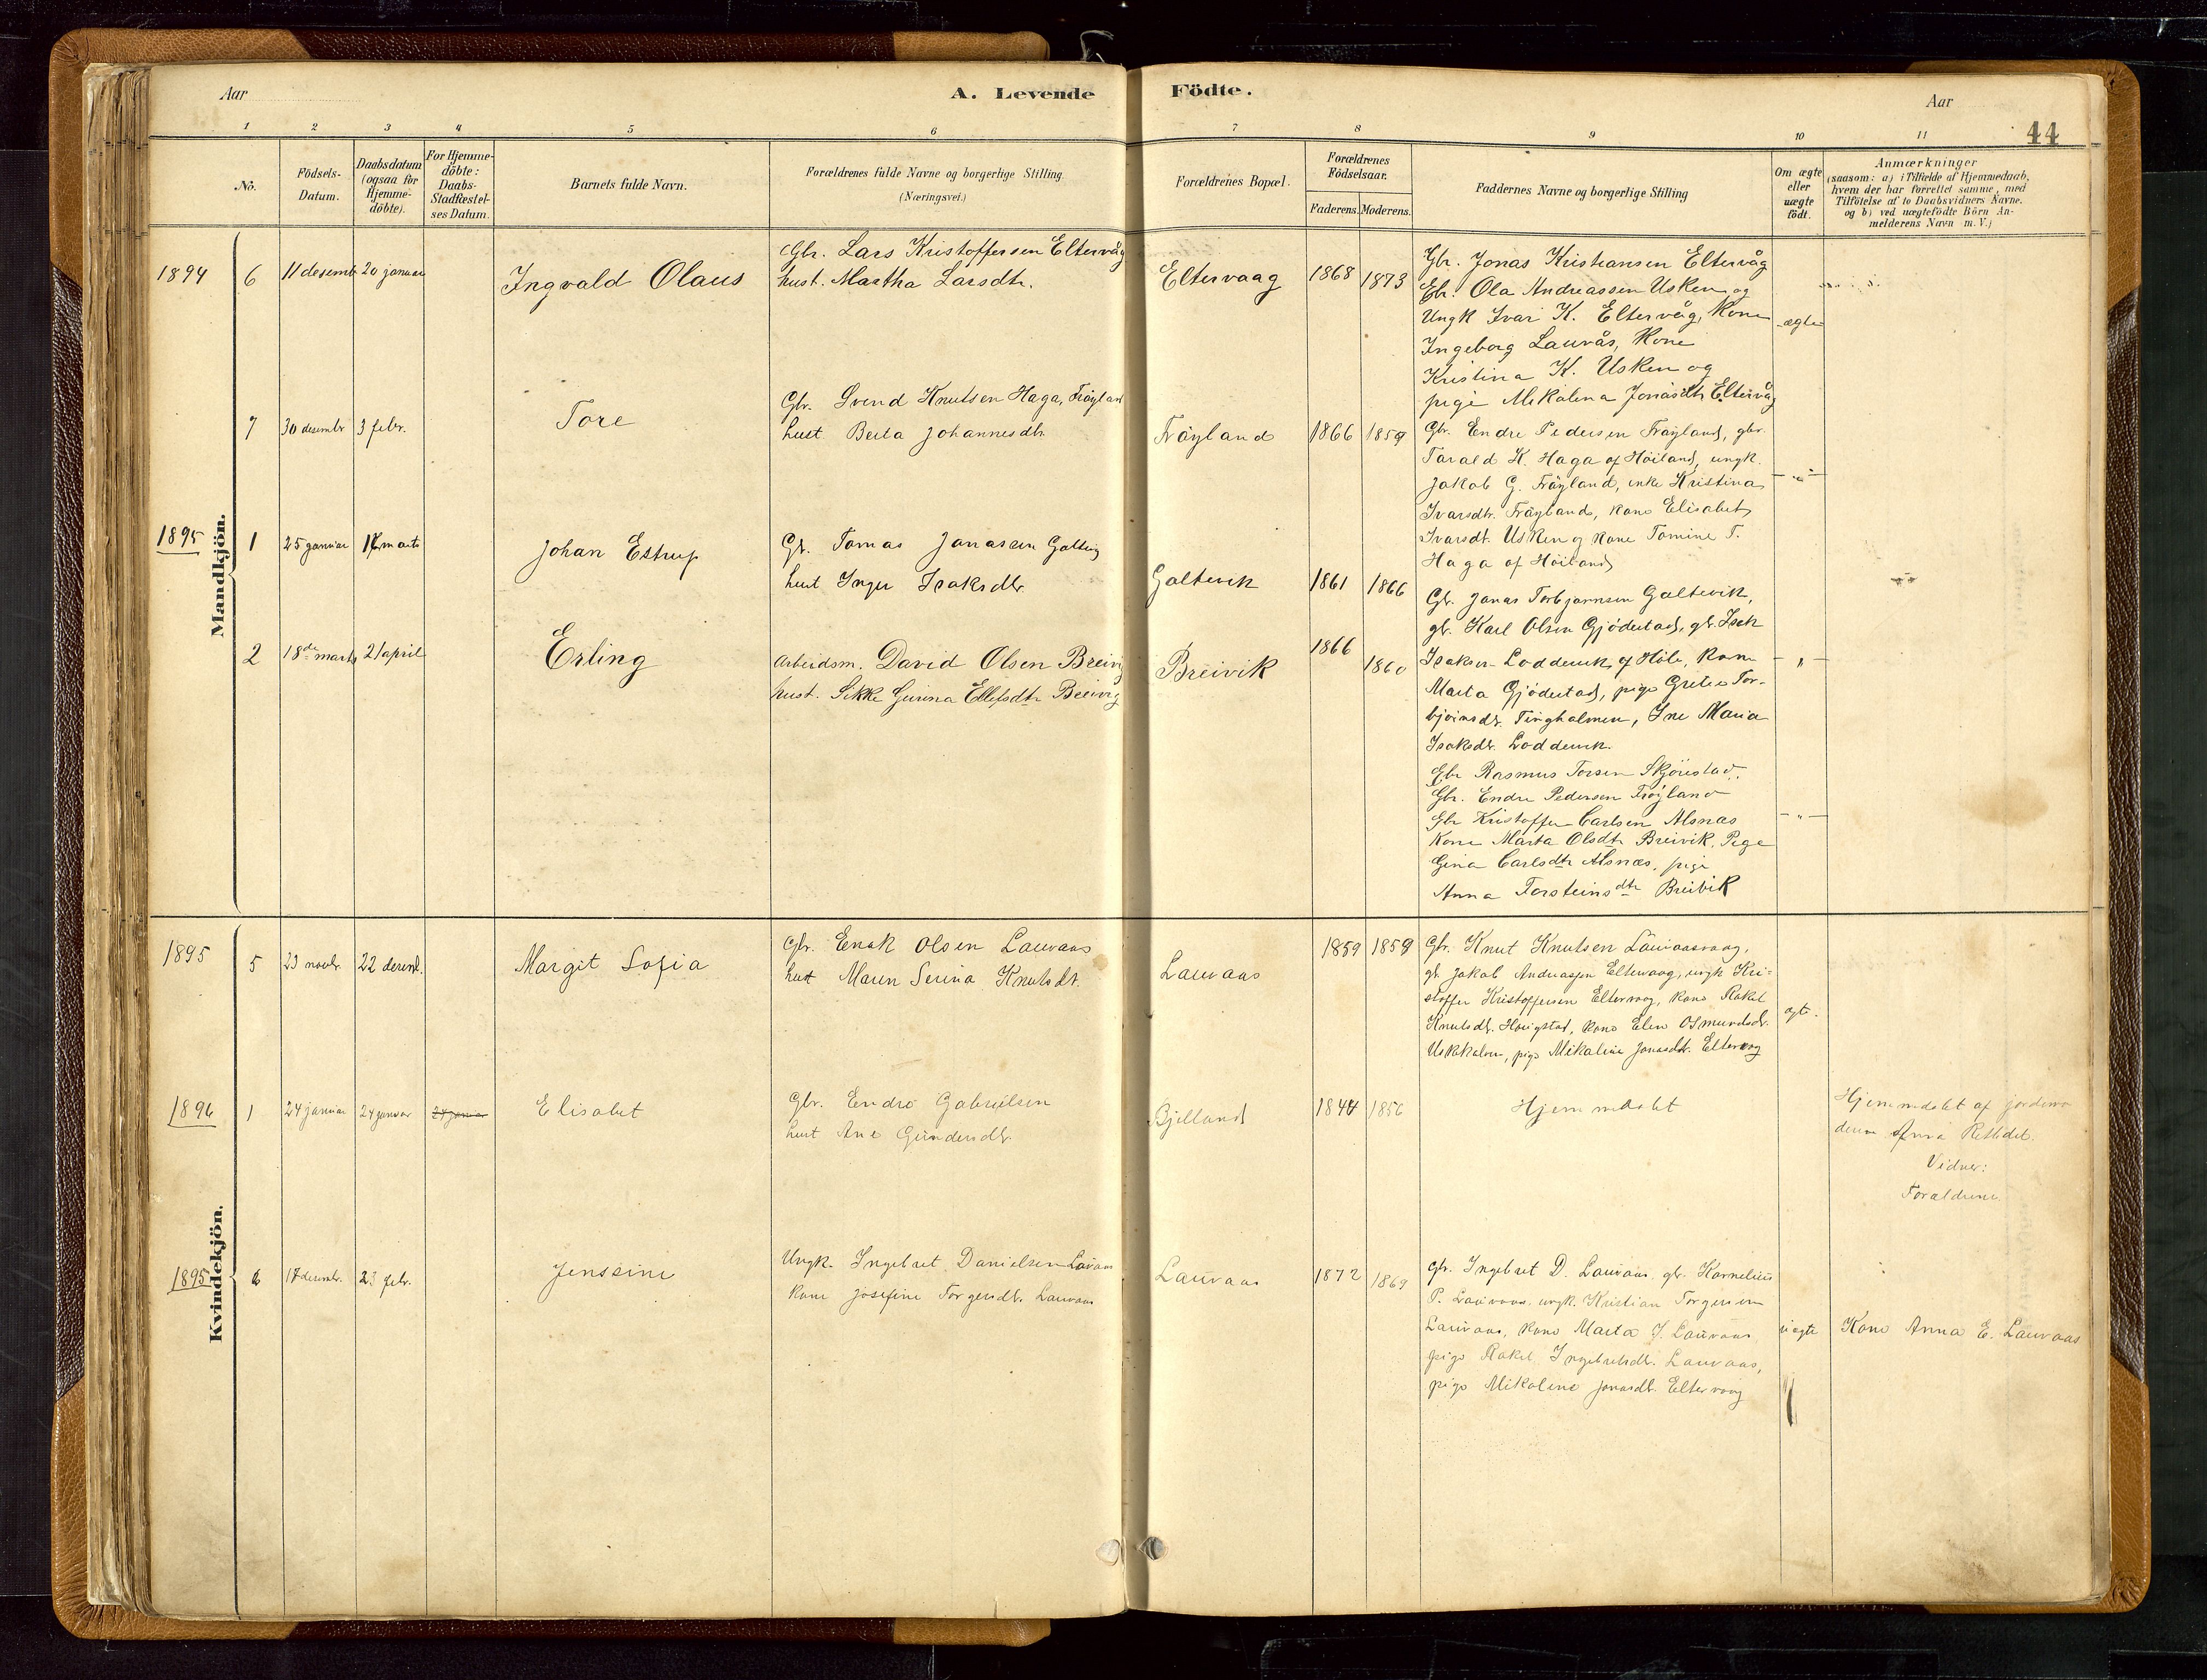 Aar
A. Levende Födte.
Aar
44
1 2 3 4 5 6 7 8 9 10 11
No.
Födsels-Datum.
Daabsdatum (ogsaa for Hjemme-döbte).
For Hjemme-döbte: Daabs-Stadfæstel-ses Datum.
Barnets fulde Navn.
Forældrenes fulde Navne og borgerlige Stilling.
(Næringsvei.)
Forældrenes Bopæl.
Forældrenes Födselsaar.
Faderens. Moderens.
Faddernes Navne og borgerlige Stilling
Om ægte eller uægte födt.
Anmærkninger
(saasom: a) i Tilfælde af Hjemmedaab,
hvem der har forrettet samme, med
Tilföielse af to Daabsvidners Navne.
og b) ved uægtefödte Börn An-
melderens Navn m. V.)
Mandkjön.
1894 6 11 desemb 20 januar
Ingvald Olaus
Gbr. Lars Kristoffersen Eltervåg
hust. Martha Larsdtr.
Eltervaag 1868 1873
Gbr. Jonas Kristiansen Eltervåg
Gbr. Ola Andreassen Usken og
Ungk Ivar K. Eltervåg, Kone
Ingeborg Lauvås, Kone
Kristina K. Usken og
pige Mikalina Jonasdtr Eltervåg
ægte
7 30 desembr 3 febr.
Tore
Gbr. Svend Knutsen Haga, Frøyland
hust Berta Johannesdtr.
Frøyland 1866 1859
Gbr. Endre Pedersen Frøyland, gbr.
Tarald K. Haga af Höiland, ungk.
Jakob G. Frøyland, enke Kristina
Ivarsdtr. Frøyland, kone Elisabet
Ivarsdt. Usken og kone Tomine T.
Haga af Höiland
- " -
1895 1 25 januar 17 marts
Johan Estrup
Gb. Tomas Jonassen Galtvig
hust Inger Isaksdtr.
Galtevik 1861 1866
Gb. Jonas Torbjørnsen Galtevik,
gb. Karl Olsen Gjödestad, gb. Isak
Isaksen Lodderuk af Höle, Kone
Marta Gjödestad, pige Grete Tor-
björnsdr. Tingholmen, Ine Maria
Isaksdr. Lodderuk.
- " -
2 18de marts 21 april
Erling
Arbeidsm. David Olsen Breivig
hust. Sikke Gurina Ellefsdtr Breivig
Breivik 1866 1860
Gbr Rasmus Torsen Skjörestad.
Gbr. Endre Pedersen Frøyland
Gbr Kristoffer Carlsen Alsnæs
Kone Marta Olsdtr Breivik, Pige
Gina Carlsdtr Alsnæs, pige
Anna Torsteinsdtr Breivik
- " -
Kvindekjön.
1895 5 23 novbr. 22 desemb.
Margit Sofia
Gbr. Enok Olsen Lauvaas
hust Maren Serina Knutsdt.
Lauvaas 1859 1859
Gbr. Knut Knutsen Lauvaasvaag,
gb Jakob Andreassen Eltervaag, ungk Kri-
stoffer Kristoffersen Eltervaag, kone Rakel
Knutsdt. Haugstad, kone Elen Osmundsdt.
Uskekalven, pige Mikaline Jonasdtr. Eltervaag
ægte.
1896 1 24 januar 24 januar 24 januar
Elisabet
Gbr. Endre Gabrielsen
hust Ane Gundersdtr.
Bjelland 1844 1856
Hjemmdöbt
Hjemmedöbt af jordemo
deren Anna Rettedal.
Vidner:
Forældrene.
1895 6 17 desembr. 23 febr.
Jenssine
Ungk. Ingebret Danielsen Lauvaas
Kone Josefine Torgersdtr. Lauvaas
Lauvaas 1872 1869
Gbr. Ingebret D. Lauvaas, gbr. Kornelius
P. Lauvaas, ungk. Kristian Torgersen
Lauvaas, kone Marta J. Lauvaas,
pige Rakel Ingebretsdtr. Lauvaas,
pige Mikaline Jonasdtr. Eltervaag
uægte
Kone Anna E. Lauvaas